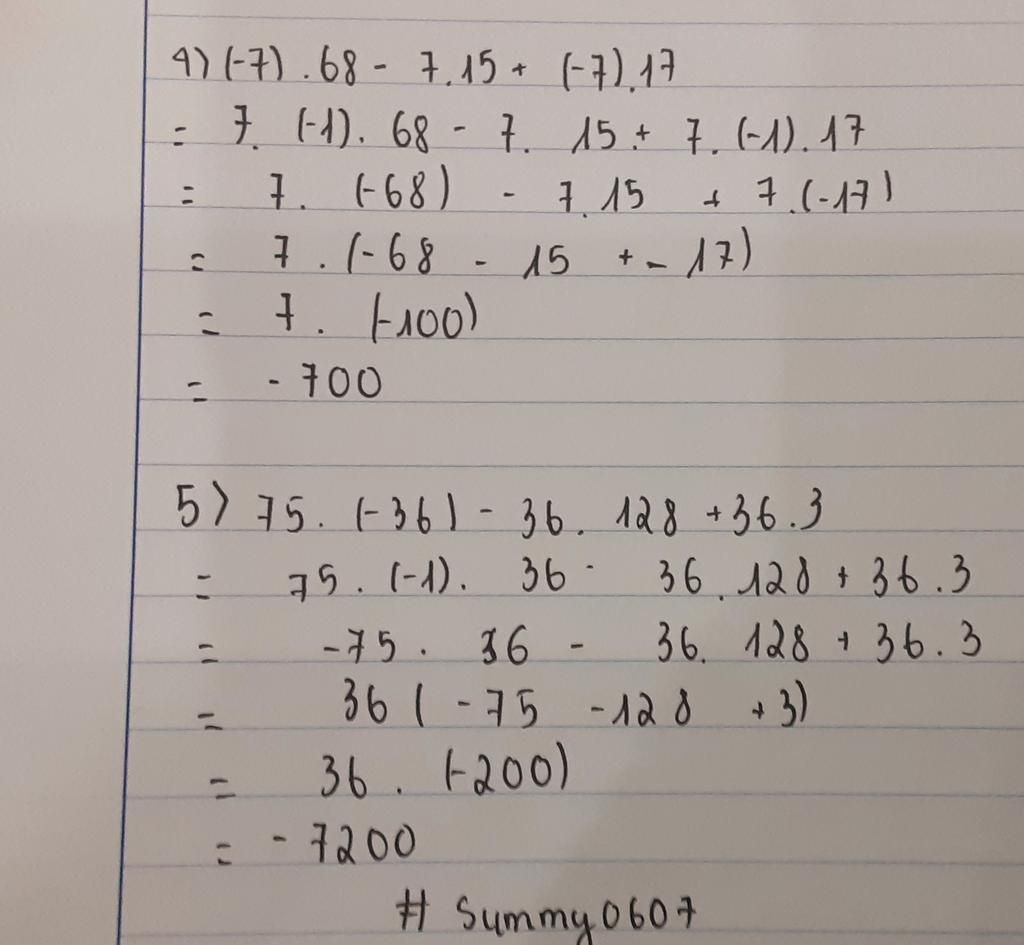 4) (-7) . 68 - 7.15 + (-7).17
= 7. (-1). 68 - 7. 15 + 7. (-1). 17
= 7. (-68) - 7.15 + 7.(-17)
= 7 . (-68 - 15 + - 17)
= 7 . (-100)
= - 700
5) 75. (-36) - 36. 128 + 36.3
= 75. (-1). 36 - 36.128 + 36.3
= -75. 36 - 36. 128 + 36.3
= 36 ( -75 -128 + 3)
= 36 . (-200)
= - 7200
# Summy0607